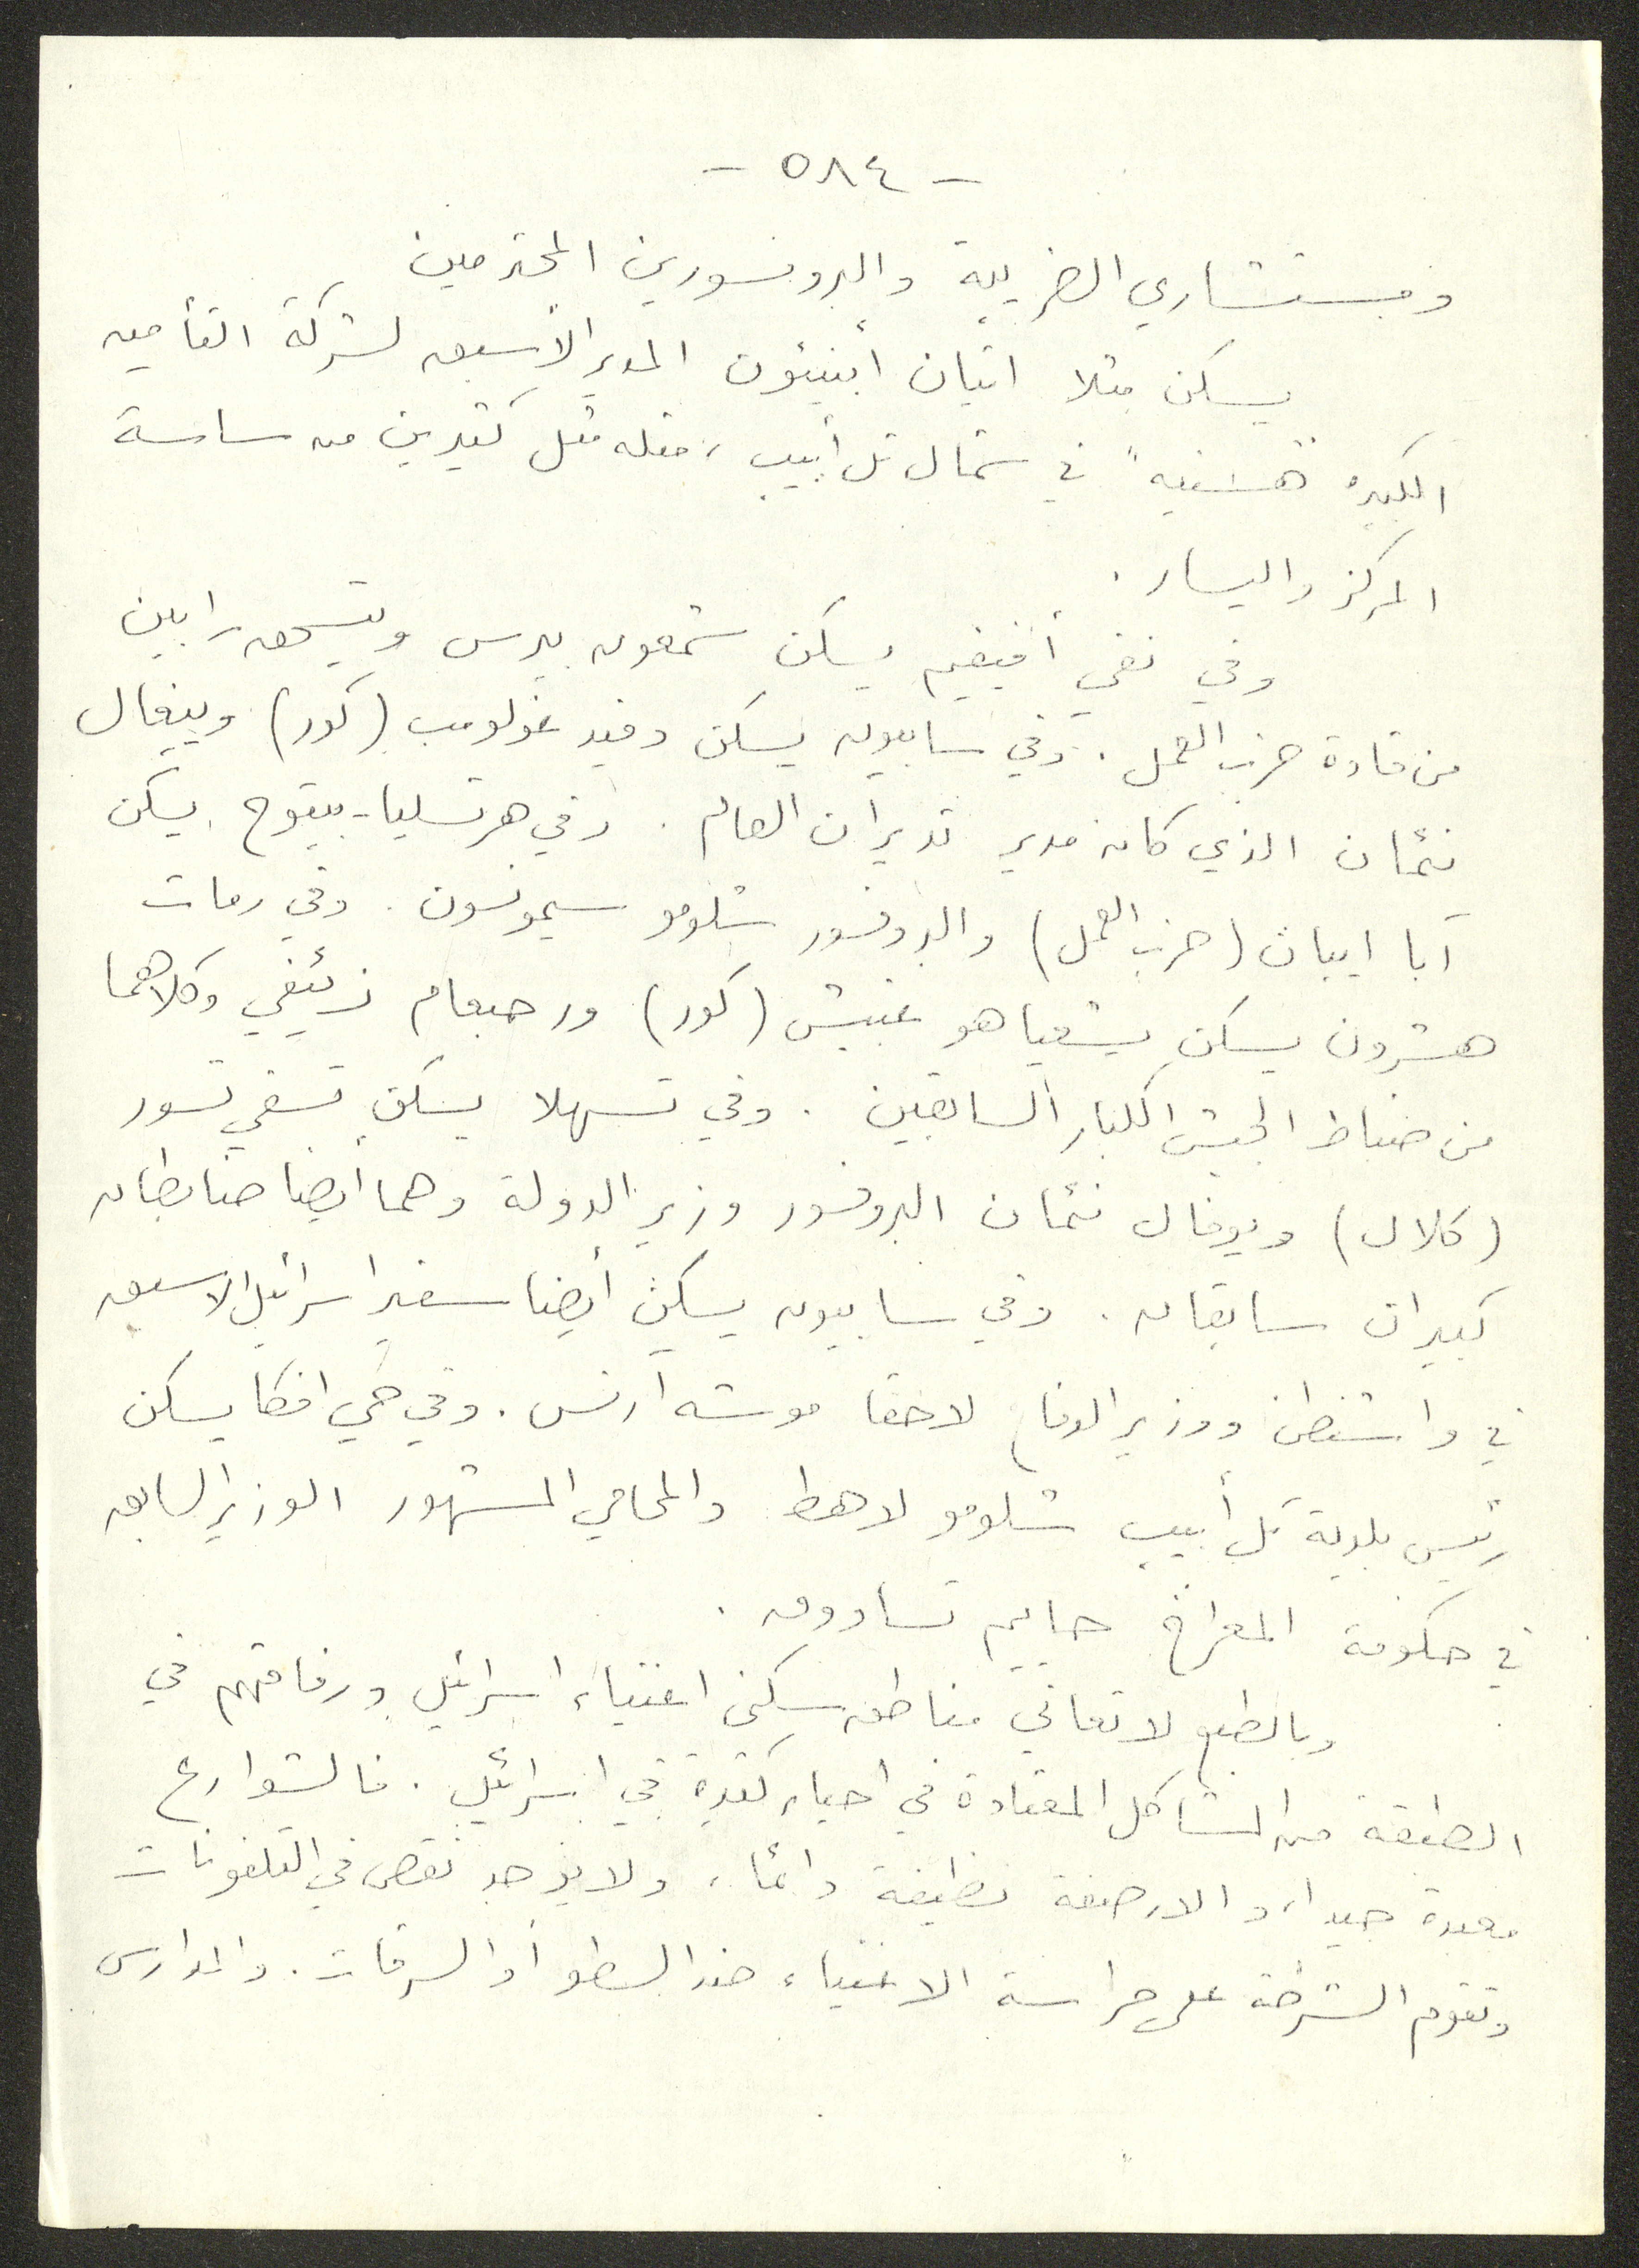 - ٥٨٤ -
ومستشاري الضريبة والبروفسورين المحترمين
يسكن مثلا ايتان أبنيئون المدير الأسبق لشركة التأمين
الكبيرة "هسنيه" في شمال تل أبيب، مثله مثل كثيرين من ساسة
المركز واليسار.
وفي نفي أفيفيم يسكن شمعون بيرس ويتسحق رابين
من قادة حزب العمل. وفي سابيون يسكن دفيد غولومب (كور) وييغال
نئمان الذي كان مدير تديران العام. وفي هرتسليا-بيتوح يسكن
آبا ايبان (حزب العمل) والبروفسور شلومو سيمونسون. وفي رمات
هشرون يسكن يشعياهو غبيش (كور) ورحبعام زئيفي وكلاهما
من ضباط الجيش الكبار السابقين. وفي تسهلا يسكن تسفي تسور
(كلال) ويوفال نئمان البروفسور وزير الدولة وهما أيضا ضابطان
كبيران سابقان. وفي سابيون يسكن أيضا سفير اسرائيل الاسبق
في واشنطن ووزير الدفاع لاحقا موشه آرنس. وفي حي افكا يسكن
رئيس بلدية تل أبيب شلومو لاهط والمحامي المشهور الوزير السابق
في حكومة المعراخ حاييم تسادوق.
وبالطبع لا تعاني مناطق سكنى اغنياء اسرائيل ورفاقهم في
الطبقة من المشاكل المعتادة في احياء كثيرة في اسرائيل. فالشوارع
معبدة جيدا، والارصفة نظيفة دائما، ولا يوجد نقص في التلفونات
وتقوم الشرطة على حراسة الاغنياء ضد السطو أو السرقات. والمدارس